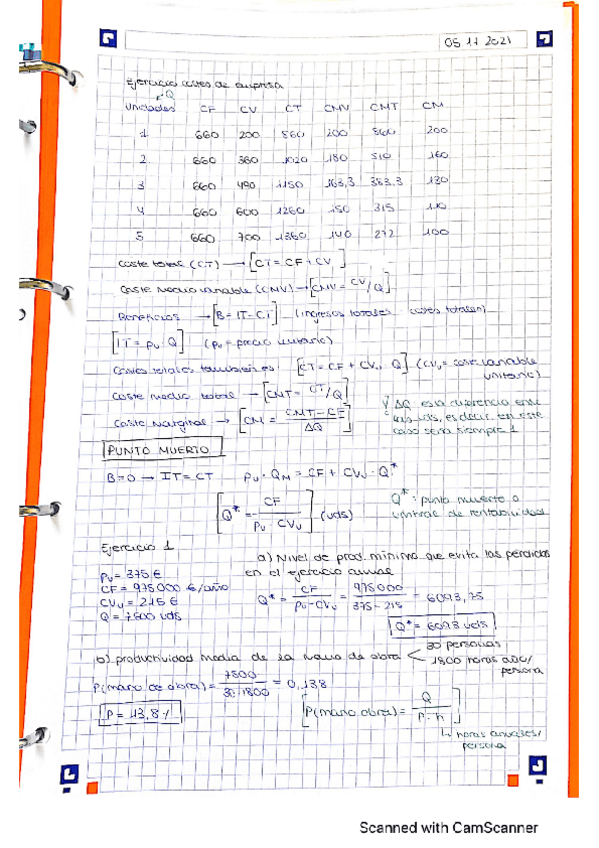 05 11 2021
Ejercicio costes de empresa
Q
Unidades CF CV CT CMV CMT CM
1 660 200 860 200 860 200
2 660 360 1020 180 510 160
3 660 490 1150 163,3 383,3 130
4 660 600 1260 150 315 110
5 660 700 1360 140 272 100
Coste total (CT) → [CT = CF + CV]
Coste medio variable (CMV) → [CMV = CV/Q]
Beneficios → [B = IT - CT] (ingresos totales costes totales)
[IT = pu · Q] (pu = precio unitario)
Costes totales también es: [CT = CF + CVu · Q] (CVu = coste variable unitario)
Coste medio total → [CMT = CT/Q]
Coste marginal → [CM = CMT - CF / ΔQ]
ΔQ es la diferencia entre
las uds, es decir, en este
caso será siempre 1
PUNTO MUERTO
B=0 → IT = CT pu · QM = CF + CVu · Q*
[Q* = CF / pu - CVu] (uds)
Q*: punto muerto o
umbral de rentabilidad
Ejercicio 1
pu = 375 €
CF = 975000 €/año
CVu = 215 €
Q = 7500 uds
a) Nivel de prod. mínimo que evita las pérdidas
en el ejercicio anual
Q* = CF / pu - CVu = 975000 / 375 - 215 = 6093,75
Q* = 6093 uds
b) productividad media de la mano de obra < 30 personas
1800 horas año/
persona
P(mano de obra) = 7500 / 30·1800 = 0,138
P = 13,8 %
[P(mano obra) = Q / P · h]
↳ horas anuales/
persona
Scanned with CamScanner